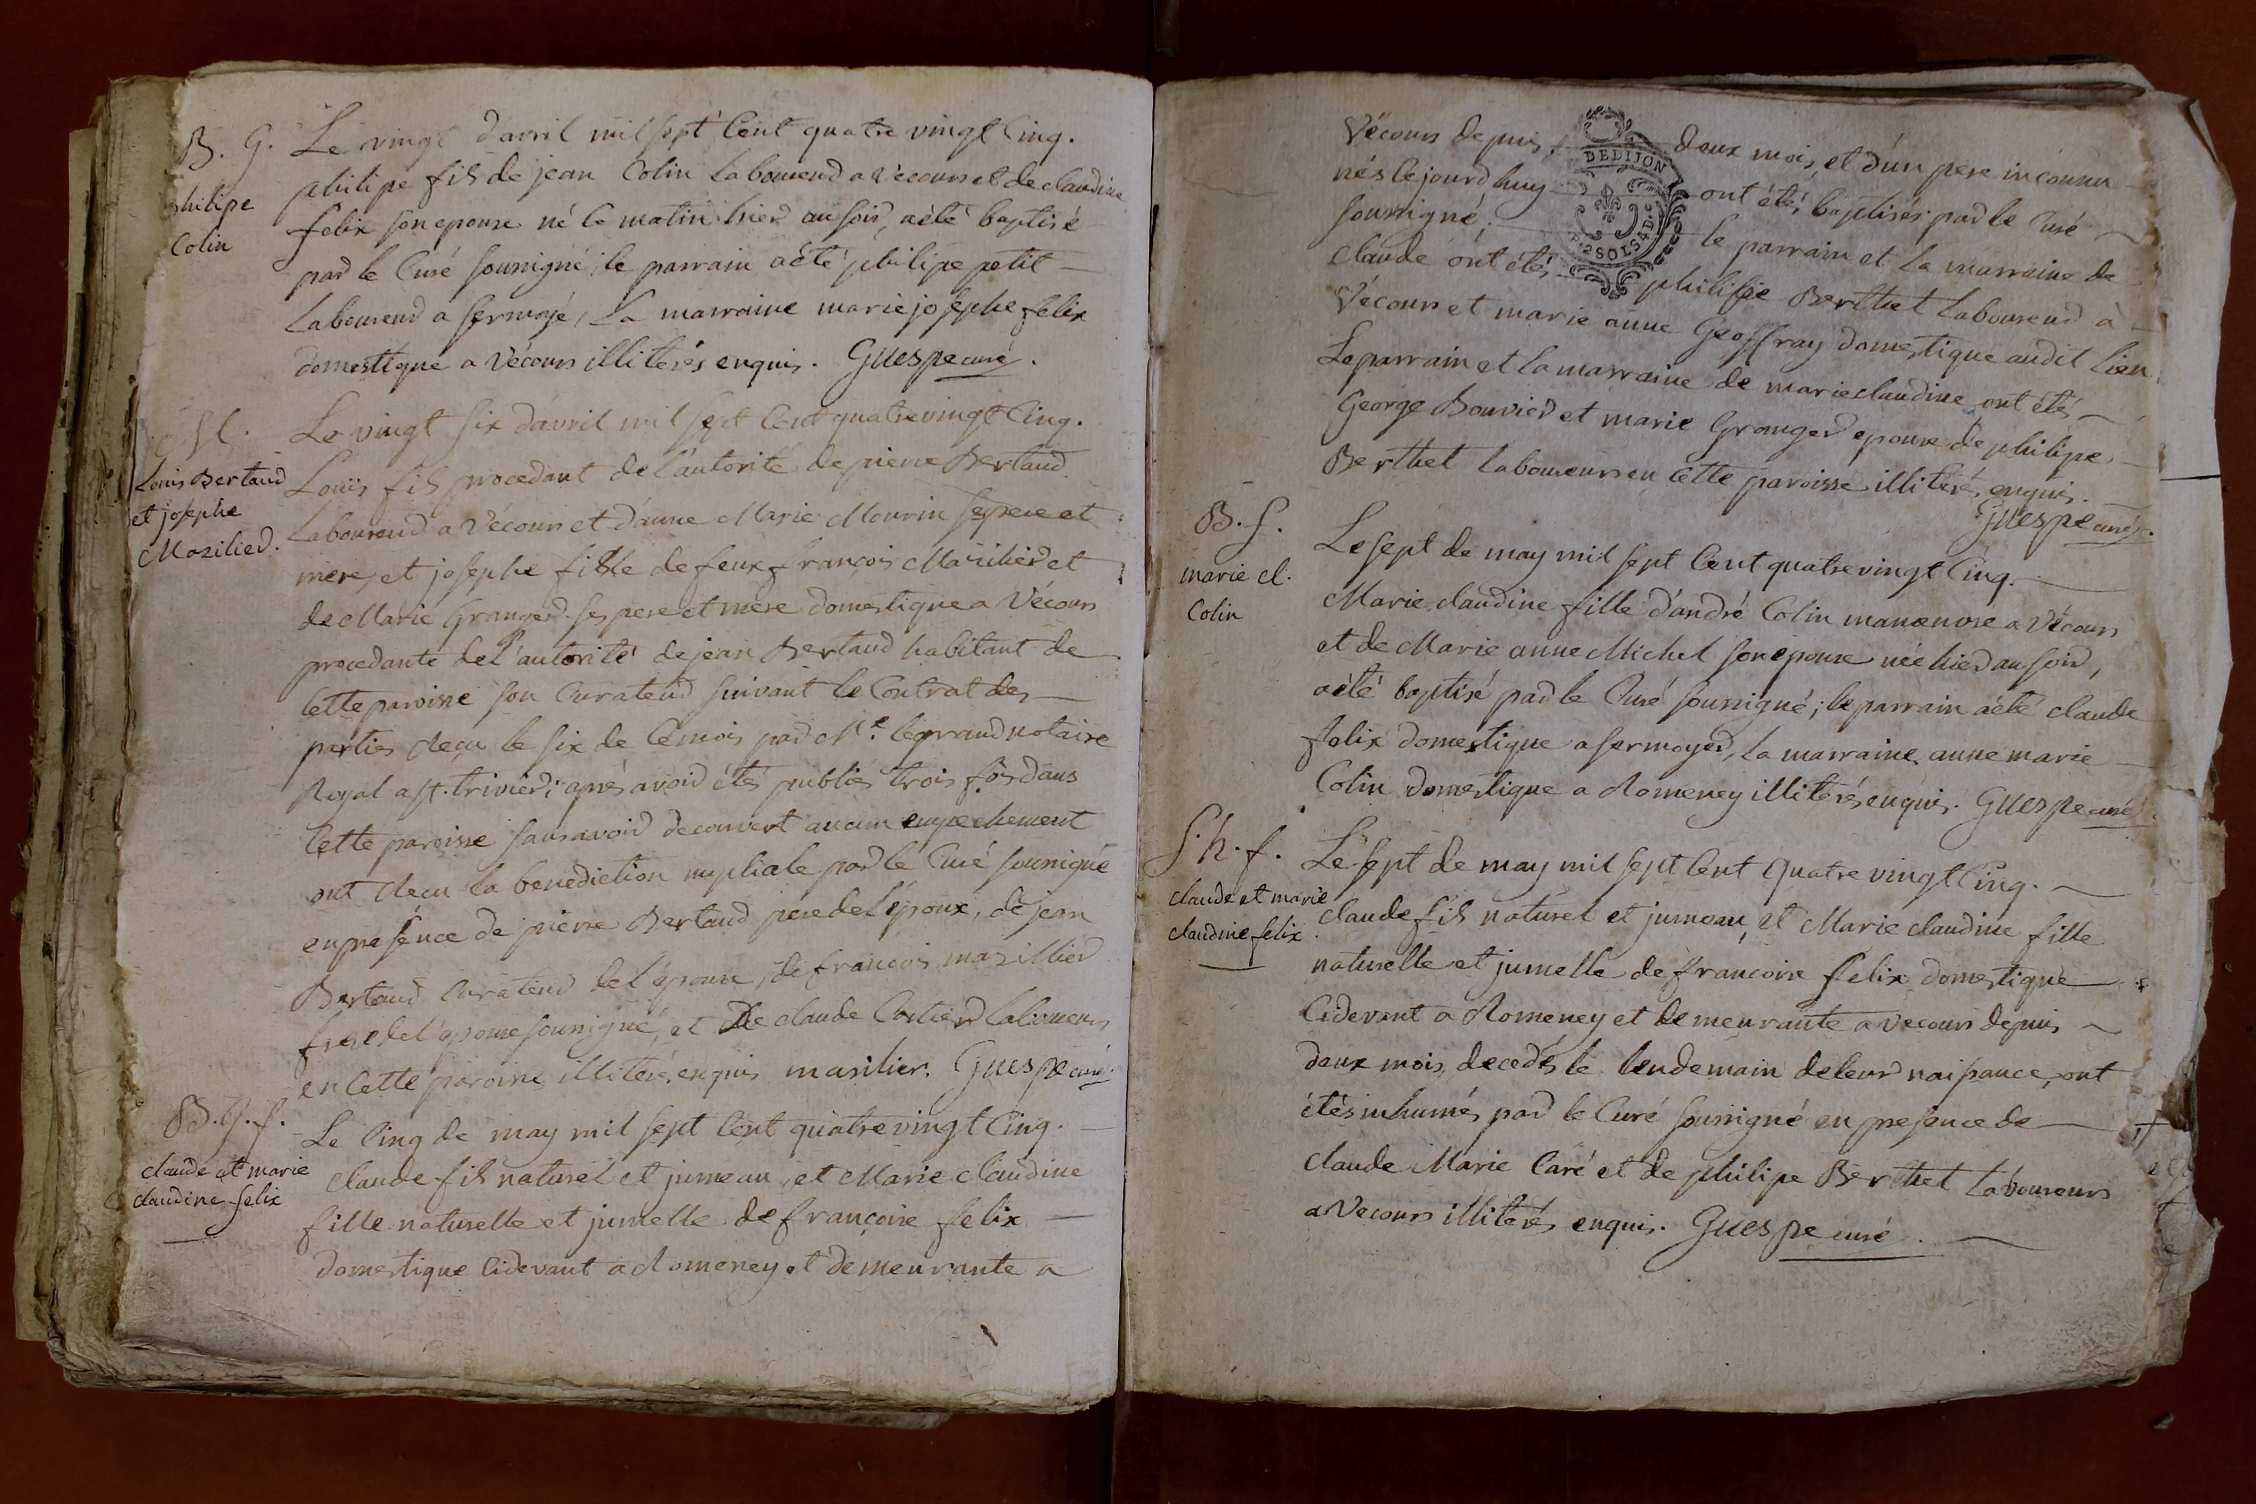 B. G.
philipe
Colin
Le vingt d'avril mil sept cent quatre vingt cinq.
philipe fils de jean Colin laboureur a vécours et de claudine
felix son epouse né le matin hier au soir, a été baptisé
par le Curé soussigné, le parrain a été philipe petit
laboureur a sermoyé, la marraine marie josephe felix
domestique a Vécours illiterés enquis. Guespe curé.
M.
Louis Bertaud
et josephe
Mazilier.
Le vingt six d'avril mil sept cent quatre vingt cinq.
Louis fils procedant de l'autorité de pierre Bertaud
laboureur a Vécours et d'anne Marie Mourin ses pere et
mere, et josephe fille de feux françois Mazilier et
de Marie Granger ses pere et mere domestique a Vécours
procedante de l'autorité de jean Bertaud habitant de
cette paroisse son Curateur suivant le Contrat des
parties reçu le six de ce mois par Me. legrand notaire
Royal a st. trivier; aprés avoir étés publiés trois fois dans
Cette paroisse sans avoir decouvert aucun empechement
ont reçu la benediction nuptiale par le Curé soussigné
en presence de pierre Bertaud pere de l'époux, de jean
Bertaud Curateur de l'épouse, de françois mazillier
frere de l'epouse soussigné, et De claude Cartier laboureurs
en Cette paroisse illiterés enquis masilier. Guespe curé.
B. J. f.
claude et marie
claudine felix
Le Cinq de may mil sept cent quatre vingt Cinq.
claude fils naturel et jumeau, et Marie claudine
fille naturelle et jumelle de françoise felix
domestique Cidevant a Romeney et demeurante a
Vécours depuis deux mois, et d'un pere inconnu
DE DIJON
2 SOLS 4 D.
nés cejourd'huy ont étés baptisés par le Curé
soussigné; le parrain et la marraine de
claude ont étés philippe Berthet laboureur à
Vécours et marie anne Geoffray domestique audit lieu.
Le parrain et la marraine de marie claudine ont étés
George Bouvier et marie Granger epouse de philipe
Berthet laboureurs en Cette paroisse illiterés enquis.
Guespe curé.
B. f.
marie cl.
Colin
Le sept de may mil sept Cent quatre vingt Cinq.
Marie claudine fille d'andré Colin manœuvre a Vécours
et de Marie anne Michel son epouse née hier au soir,
a été baptisé par le Curé soussigné; le parrain a été claude
felix domestique a sermoyer, la marraine anne marie
Colin domestique a Romeney illiterés enquis. Guespe curé
S. h. f.
claude et marie
claudine felix
Le sept de may mil sept Cent quatre vingt Cinq.
claude fils naturel et jumeau, et Marie claudine fille
naturelle et jumelle de francoise felix domestique
Cidevant a Romeney et demeurante a vecours depuis
deux mois, decedés le lendemain de leur naissance, ont
étés inhumés par le Curé soussigné en presence de
claude Marie Caré et de philipe Berthet laboureurs
a Vecours illiterés enquis. Guespe curé.